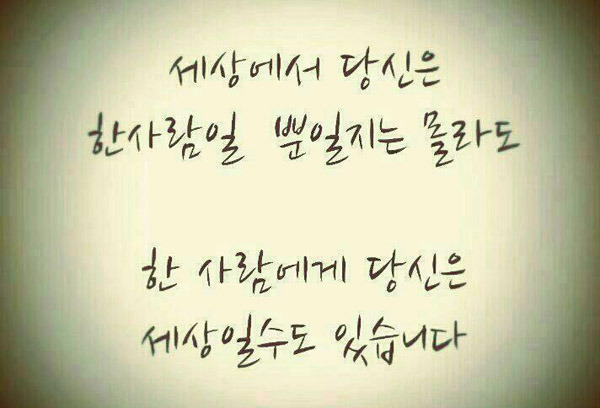 세상에서 당신은
한사람일 뿐일지는 몰라도
한 사람에게 당신은
세상일수도 있습니다